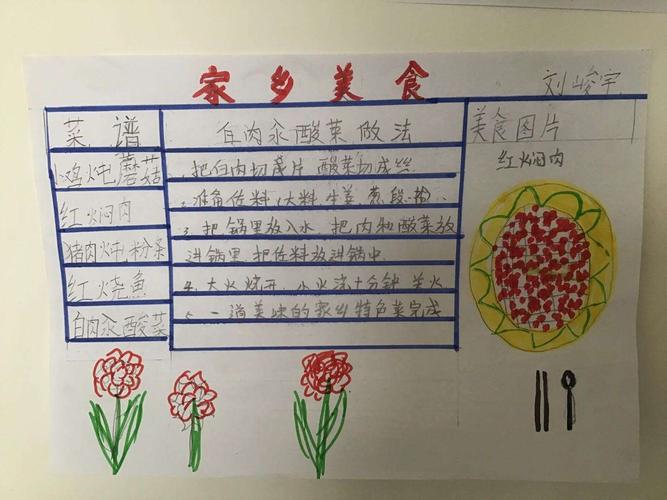 家乡美食
刘峻宇
菜谱
小鸡炖蘑菇
红火焖肉
猪肉炖粉条
红火烧鱼
白肉汆酸菜
白肉汆酸菜做法
1.把白肉切成片 酸菜切成丝
2.准备佐料 大料 生姜 葱段
3.把锅里放入水 把肉和酸菜放
进锅里 把佐料放进锅中
4.大火烧开 小火烧十分钟 关火
5.一道美味的家乡特色菜完成
美食图片
红火焖肉